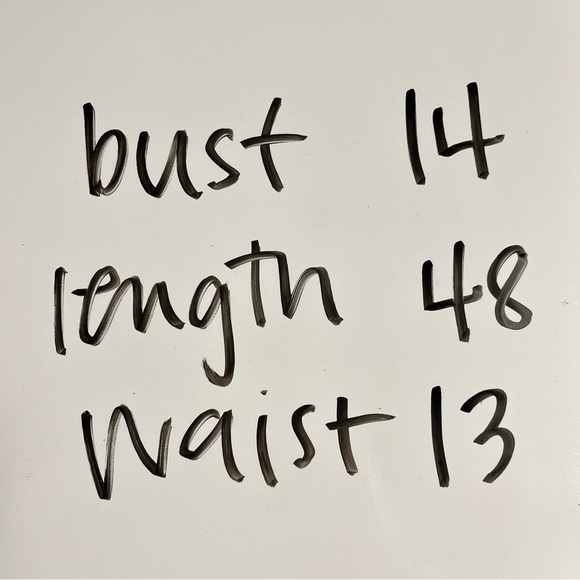 bust 14
length 48
waist 13